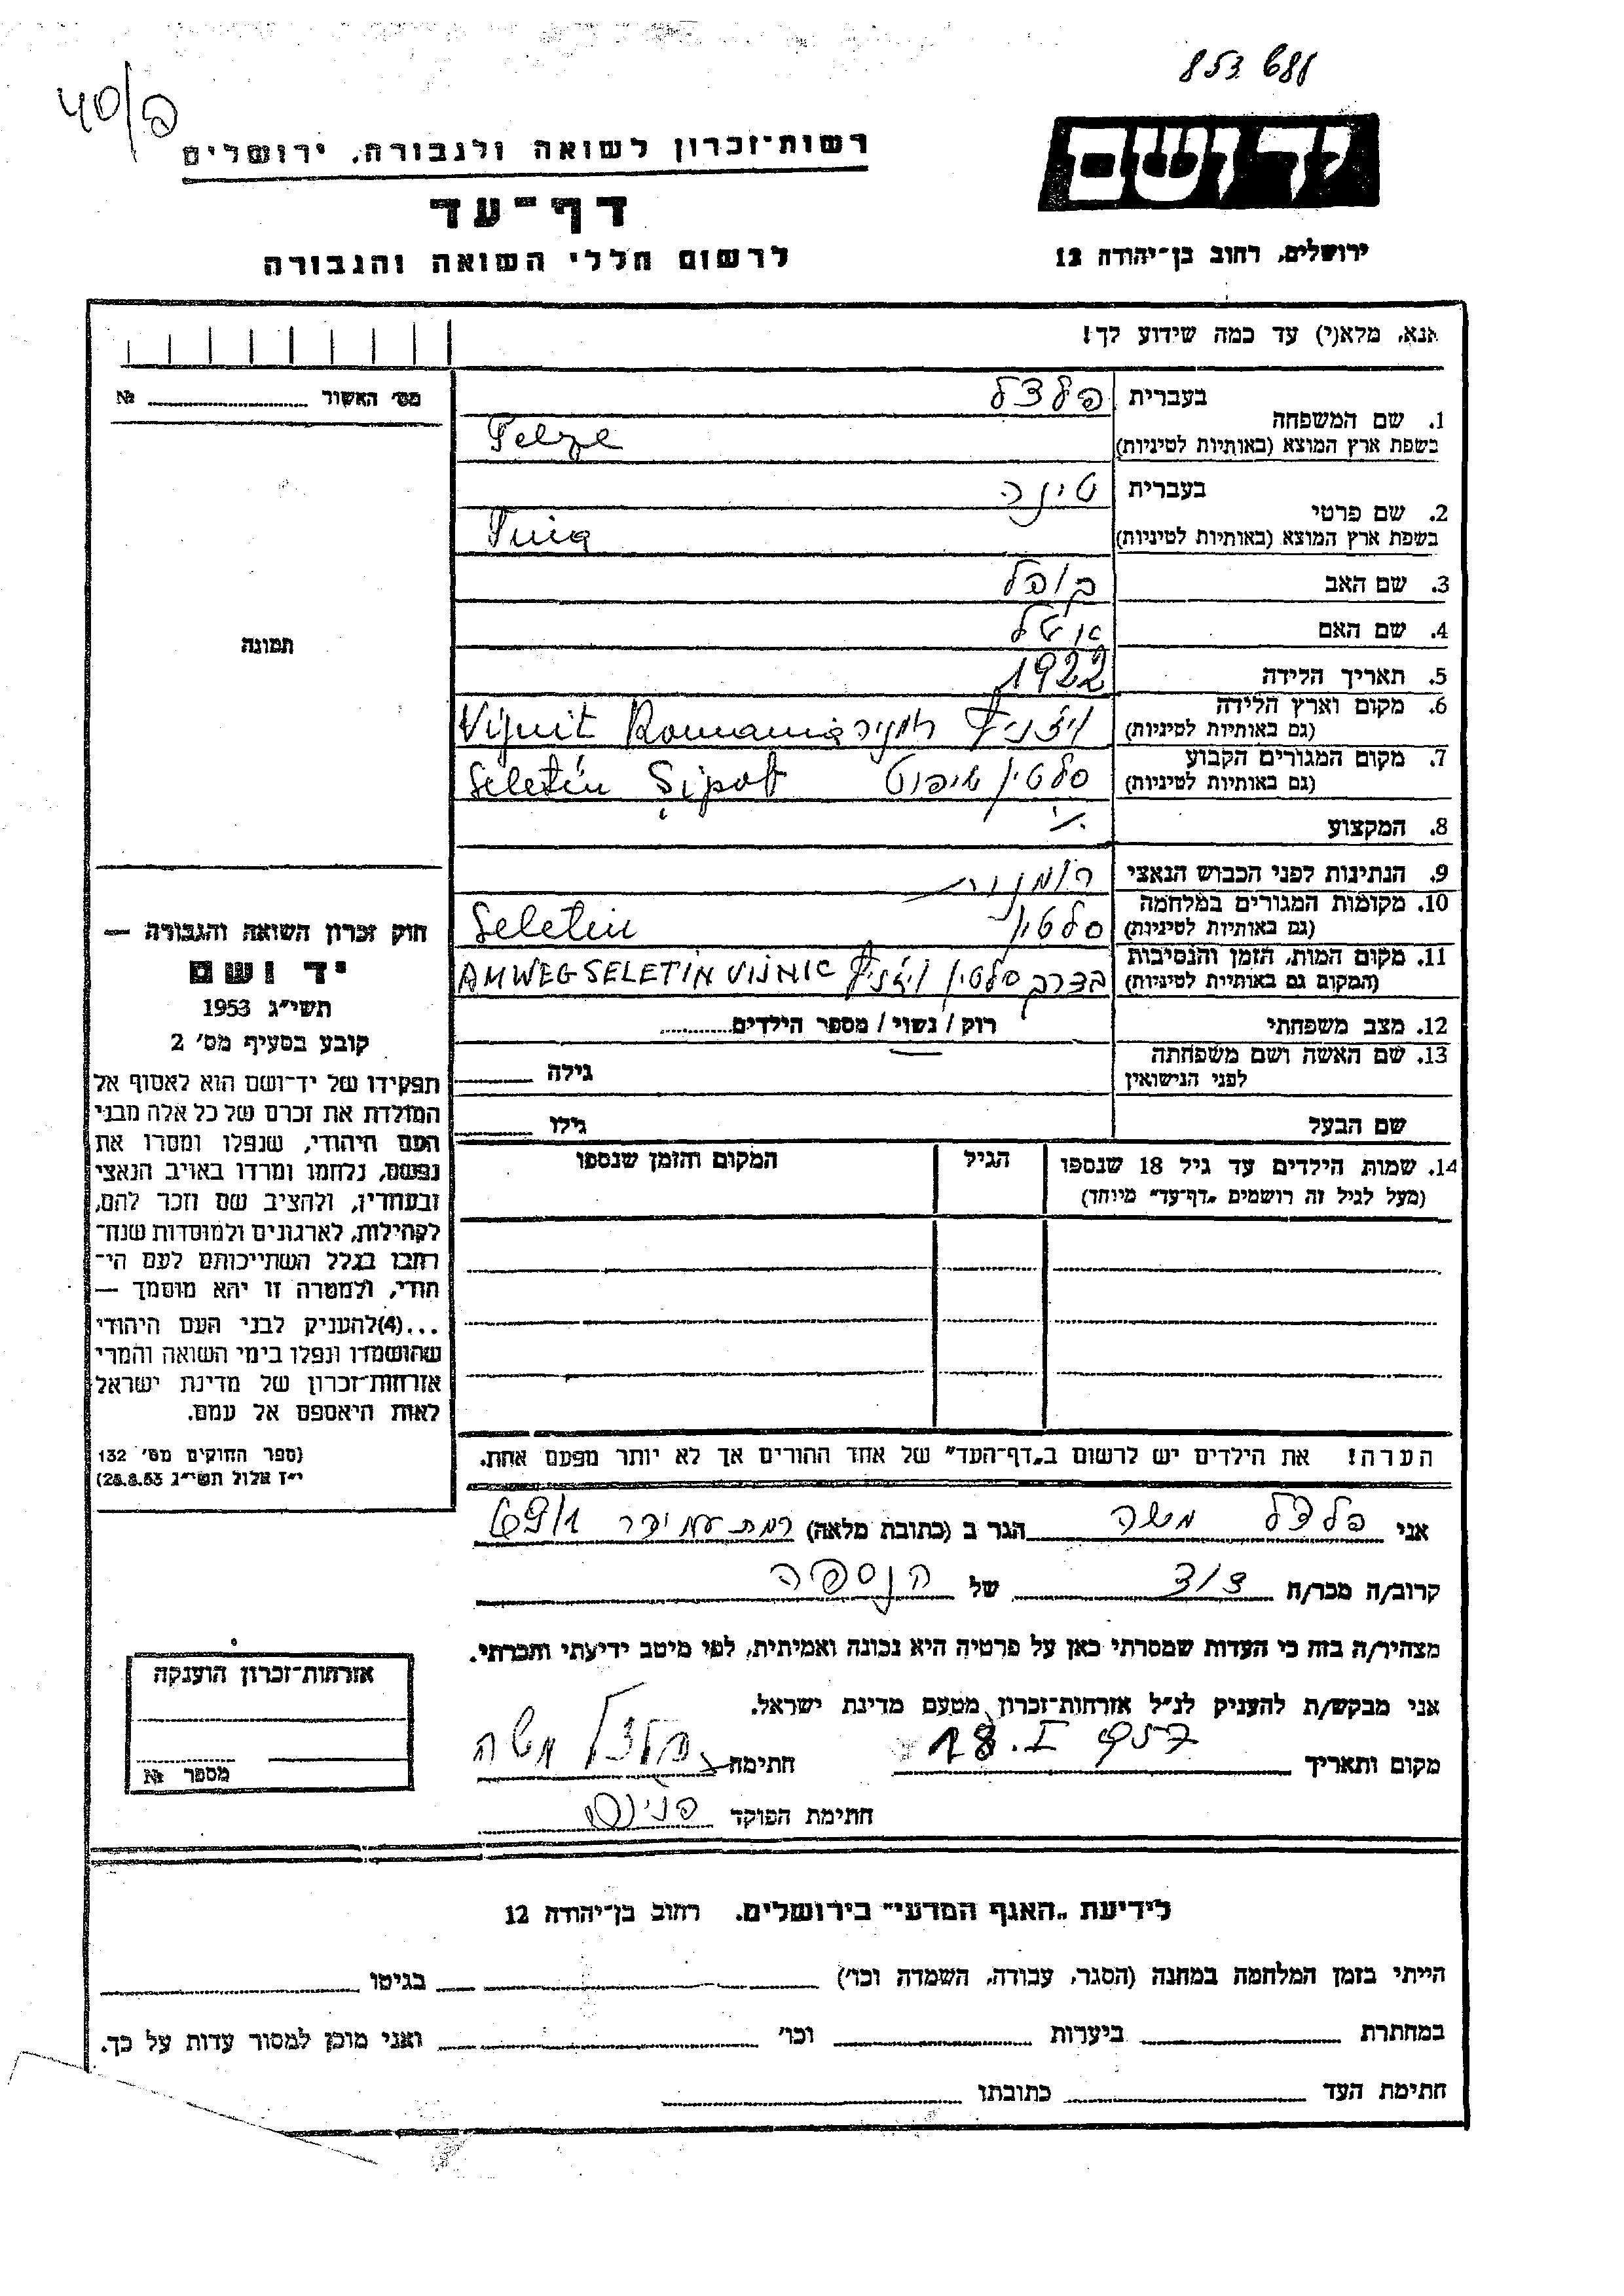 853 688
40/פ
יד ושם
רשות־זכרון לשואה ולגבורה, ירושלים
דף־עד
לרשום חללי השואה והגבורה
ירושלים, רחוב בן־יהודה 12
אנא, מלא(י) עד כמה שידוע לך!
מס׳ האשור № 
תמונה
1. שם המשפחה
בעברית פלצל
בשפת ארץ המוצא (באותיות לטיניות) Pelzl
2. שם פרטי
בעברית טינה
בשפת ארץ המוצא (באותיות לטיניות) Tina
3. שם האב
4. שם האם
5. תאריך הלידה 1922
6. מקום וארץ הלידה
(גם באותיות לטיניות) ויזניץ Vijnit Romania
7. מקום המגורים הקבוע
(גם באותיות לטיניות) סלטין שיפוט Seletin Şipot
8. המקצוע
9. הנתינות לפני הכבוש הנאצי רומנית
10. מקומות המגורים במלחמה
(גם באותיות לטיניות) סלטין Seletin
11. מקום המות, הזמן והנסיבות
(המקום גם באותיות לטיניות) בדרך סלטין ויזניץ AMWEG SELETIN VIJNIC
12. מצב משפחתי רוק / נשוי / מספר הילדים
13. שם האשה ושם משפחתה
לפני הנישואין גילה
שם הבעל גילו
14. שמות הילדים עד גיל 18 שנספו הגיל המקום והזמן שנספו
(מעל לגיל זה רושמים „דף־עד” מיוחד)
הערה! את הילדים יש לרשום ב„דף־העד” של אחד ההורים אך לא יותר מפעם אחת.
חוק זכרון השואה והגבורה —
יד ושם
תשי״ג 1953
קובע בסעיף מס׳ 2
תפקידו של יד־ושם הוא לאסוף אל
המולדת את זכרם של כל אלה מבני
העם היהודי, שנפלו ומסרו את
נפשם, נלחמו ומרדו באויב הנאצי
ובעוזריו, ולהציב שם וזכר להם,
לקהילות, לארגונים ולמוסדות שנח־
רבו בגלל השתייכותם לעם הי־
הודי, ולמטרה זו יהא מוסמך —
...(4)להעניק לבני העם היהודי
שהושמדו ונפלו בימי השואה והמרי
אזרחות־זכרון של מדינת ישראל
לאות היאספם אל עמם.
(ספר החוקים מס׳ 132
י״ז אלול תשי״ג 28.8.53)
אני פלצל משה הגר ב (כתובת מלאה) רמת עמידר
קרוב/ה מכר/ה של הנספה
מצהיר/ה בזה כי העדות שמסרתי כאן על פרטיה היא נכונה ואמיתית, לפי מיטב ידיעתי והכרתי.
אני מבקש/ת להעניק לנ״ל אזרחות־זכרון מטעם מדינת ישראל.
מקום ותאריך 18. I 957 חתימה פלצל משה
חתימת הפוקד
אזרחות־זכרון הוענקה
מספר №
לידיעת „האגף המדעי” בירושלים. רחוב בן־יהודה 12
הייתי בזמן המלחמה במחנה (הסגר, עבודה, השמדה וכו׳) בגיטו
במחתרת ביערות וכו׳ ואני מוכן למסור עדות על כך.
חתימת העד כתובתו